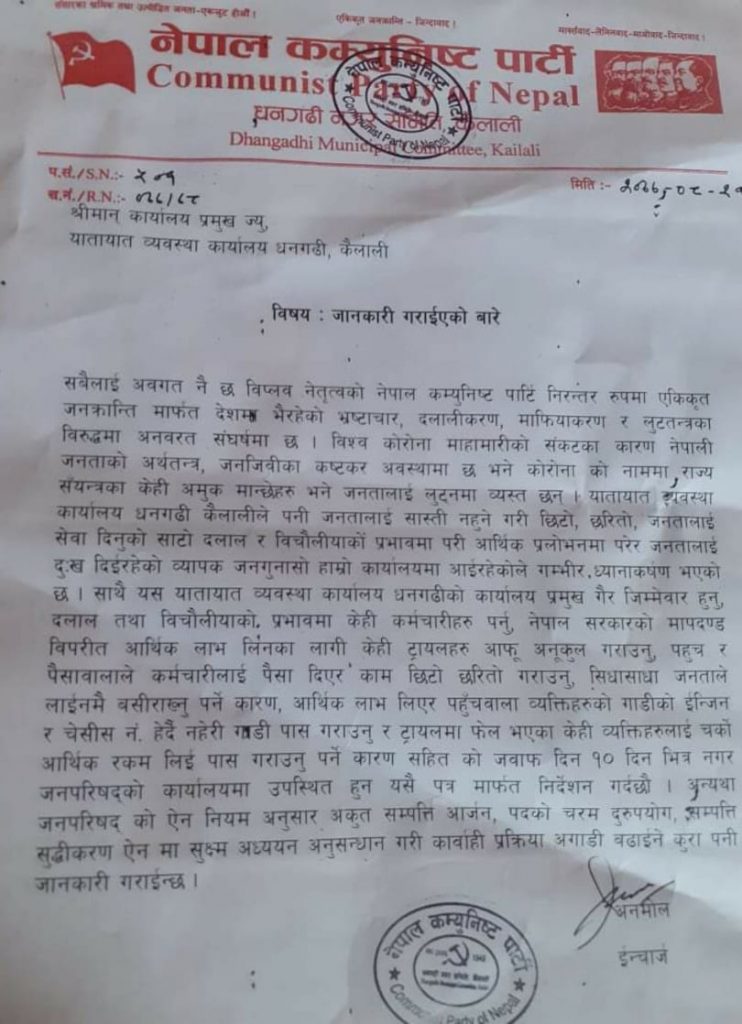 संसारका श्रमिक तथा उत्पीडित जनता-एकजुट होऔं !
एकिकृत जनक्रान्ति - जिन्दावाद !
मार्क्सवाद-लेनिनवाद-माओवाद-जिन्दावाद !
नेपाल कम्युनिष्ट पार्टी
Communist Party of Nepal
धनगढी नगर समिति, कैलाली
Dhangadhi Municipal Committee, Kailali
नेपाल कम्युनिष्ट पार्टी
Communist Party of Nepal
प.सं./S.N.:- २०१
च.नं./R.N.:- ०७७/७८
मिति :- २०७७/०८-२१
श्रीमान् कार्यालय प्रमुख ज्यु,
यातायात व्यवस्था कार्यालय धनगढी, कैलाली
विषय : जानकारी गराईएको बारे
सबैलाई अवगत नै छ विप्लव नेतृत्वको नेपाल कम्युनिष्ट पार्टि निरन्तर रुपमा एकिकृत
जनक्रान्ति मार्फत देशमा भैरहेको भ्रष्टाचार, दलालीकरण, माफियाकरण र लुटतन्त्रका
विरुद्धमा अनवरत संघर्षमा छ । विश्व कोरोना माहामारीको संकटका कारण नेपाली
जनताको अर्थतन्त्र, जनजिवीका कष्टकर अवस्थामा छ भने कोरोना को नाममा राज्य
सँयन्त्रका केही अमुक मान्छेहरु भने जनतालाई लुट्नमा व्यस्त छन् । यातायात व्यवस्था
कार्यालय धनगढी कैलालीले पनी जनतालाई सास्ती नहुने गरी छिटो, छरितो, जनतालाई
सेवा दिनुको साटो दलाल र विचौलीयाको प्रभावमा परी आर्थिक प्रलोभनमा परेर जनतालाई
दुःख दिईरहेको व्यापक जनगुनासो हाम्रो कार्यालयमा आईरहेकोले गम्भीर ध्यानाकर्षण भएको
छ । साथै यस यातायात व्यवस्था कार्यालय धनगढीको कार्यालय प्रमुख गैर जिम्मेवार हुनु,
दलाल तथा विचौलीयाको प्रभावमा केही कर्मचारीहरु पर्नु, नेपाल सरकारको मापदण्ड
विपरीत आर्थिक लाभ लिनका लागी केही ट्रायलहरु आफू अनूकुल गराउनु, पहुच र
पैसावालाले कर्मचारीलाई पैसा दिएर काम छिटो छरितो गराउनु, सिधासाधा जनताले
लाईनमै बसीराख्नु पर्ने कारण, आर्थिक लाभ लिएर पहुँचवाला व्यक्तिहरुको गाडीको ईन्जिन
र चेसीस नं. हेर्दै नहेरी गाडी पास गराउनु र ट्रायलमा फेल भएका केही व्यक्तिहरुलाई चर्को
आर्थिक रकम लिई पास गराउनु पर्ने कारण सहित को जवाफ दिन १० दिन भित्र नगर
जनपरिषद्को कार्यालयमा उपस्थित हुन यसै पत्र मार्फत निर्देशन गर्दछौ । अन्यथा
जनपरिषद् को ऐन नियम अनुसार अकुत सम्पत्ति आर्जन, पदको चरम दुरुपयोग, सम्पत्ति
सुद्धीकरण ऐन मा सुक्ष्म अध्ययन अनुसन्धान गरी कार्वाही प्रक्रिया अगाडी वढाईने कुरा पनी
जानकारी गराईन्छ ।
अनमोल
ईन्चार्ज
नेपाल कम्युनिष्ट पार्टी
Communist Party of Nepal